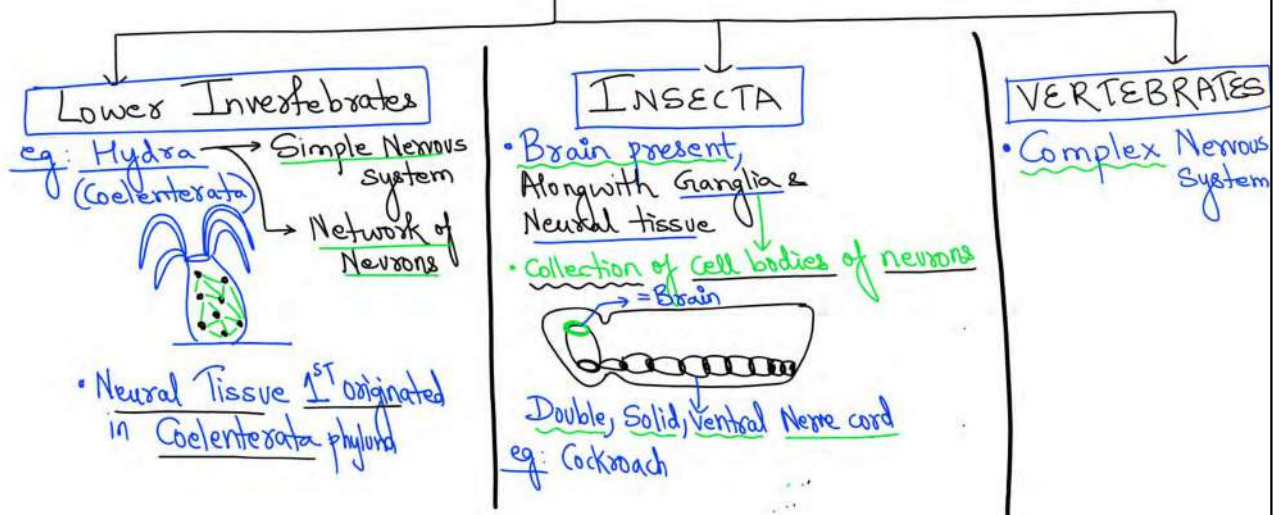 Lower Invertebrates
eg: Hydra → Simple Nervous
(Coelenterata) system
→ Network of
Nevrons
• Neural Tissue 1ST originated
in Coelenterata phylum
INSECTA
• Brain present,
Alongwith Ganglia &
Neural tissue
• Collection of cell bodies of neurons
→ = Brain
Double, Solid, Ventral Nerve cord
eg: Cockroach
VERTEBRATES
• Complex Nervous
System